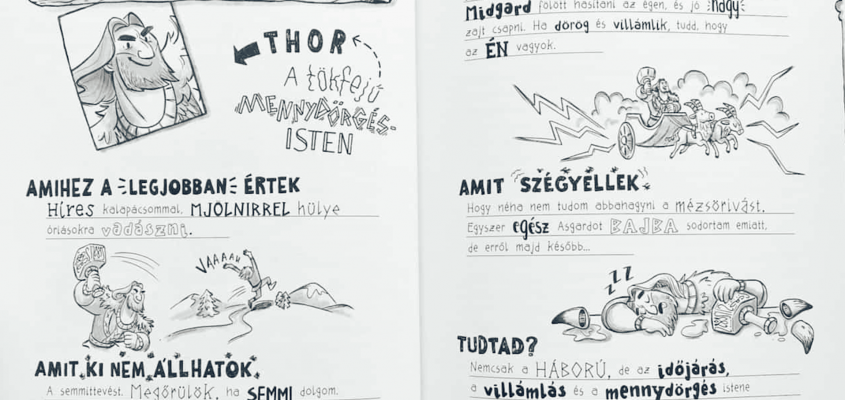 THOR
A tökfejű
MENNYDÖRGÉS-
ISTEN
AMIHEZ A LEGJOBBAN ÉRTEK
Híres kalapácsommal, MJÖLNIRREL hülye
óriásokra vadászni.
VAAAAU
AMIT KI NEM ÁLLHATOK
A semmittevést. Megőrülök, ha SEMMI dolgom.
Midgard fölött hasítani az égen, és jó nagy
zajt csapni. Ha dörög és villámlik, tudd, hogy
az ÉN vagyok.
AMIT SZÉGYELLEK
Hogy néha nem tudom abbahagyni a mézsörivást.
Egyszer egész Asgardot BAJBA sodortam emiatt,
de erről majd később...
ZZZ
TUDTAD?
Nemcsak a HÁBORÚ, de az időjárás,
a villámlás és a mennydörgés istene